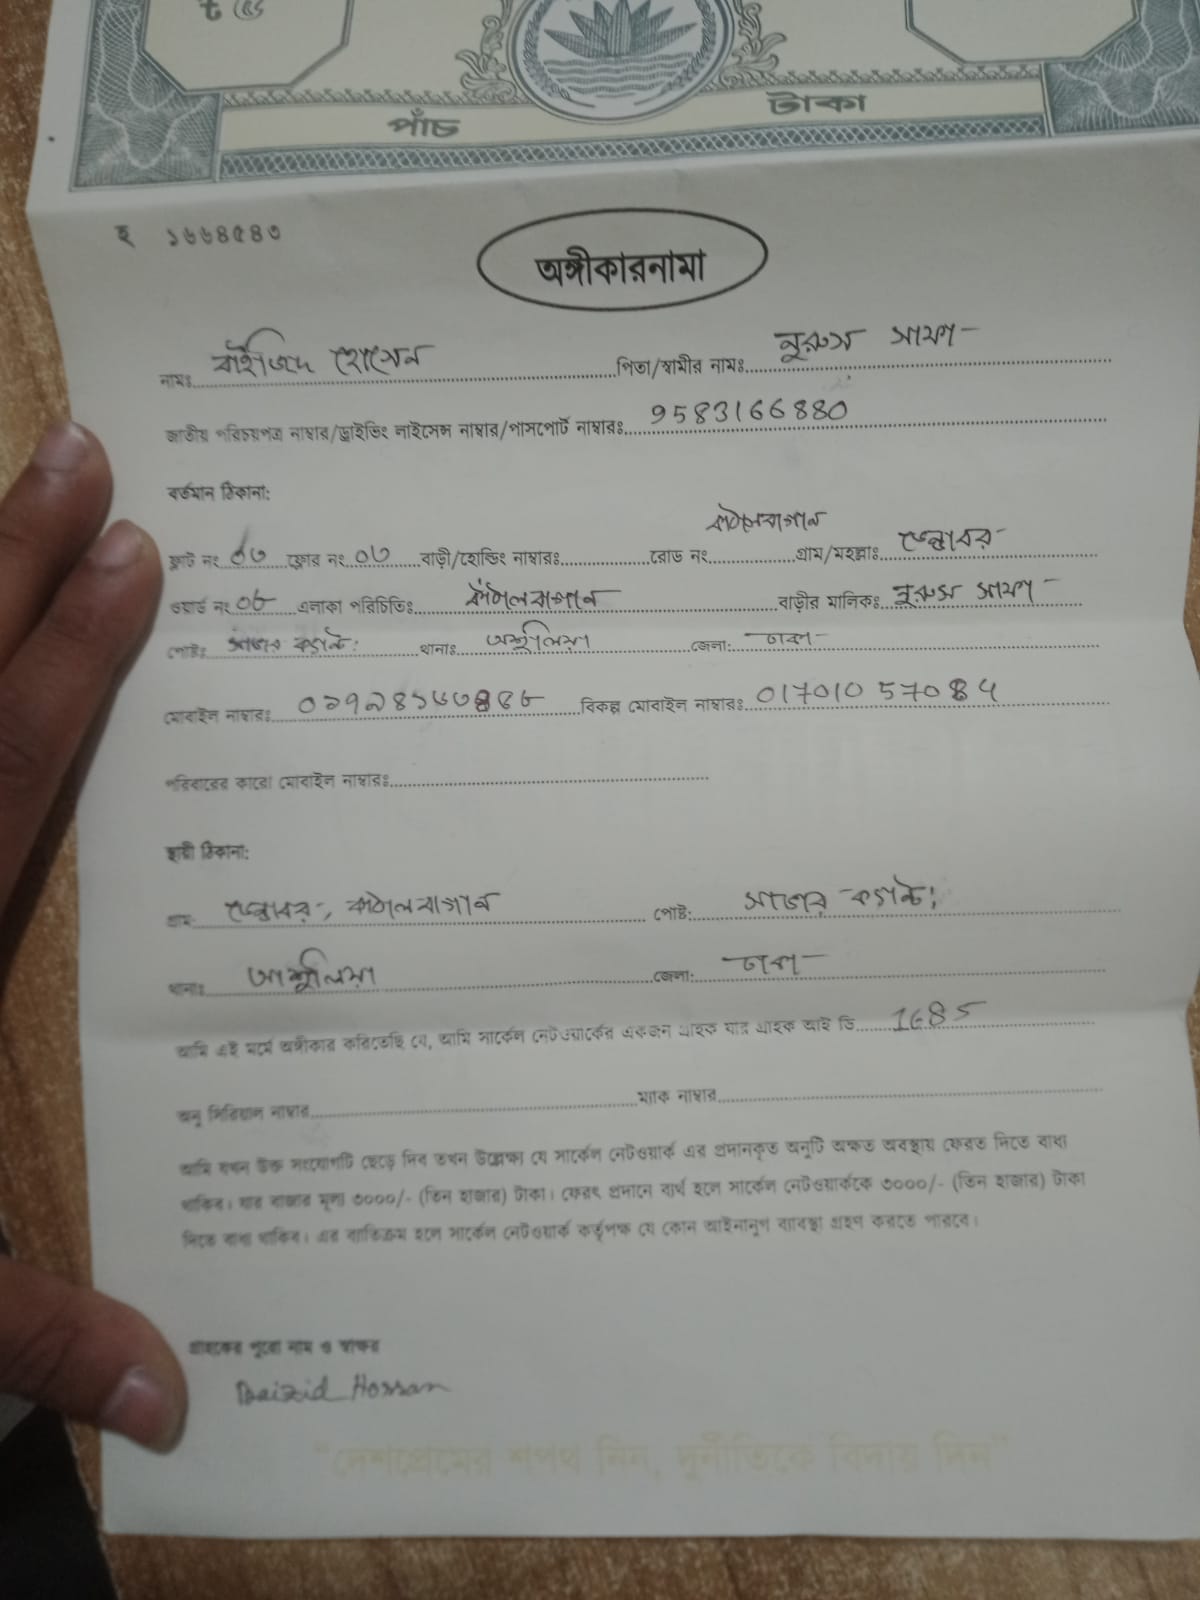 পাঁচ টাকা
হ ১৬৬৪৫৪৩
অঙ্গীকারনামা
নামঃ বাইজিদ হোসেন পিতা/স্বামীর নামঃ নুরুস সাফা
জাতীয় পরিচয়পত্র নাম্বার/ড্রাইভিং লাইসেন্স নাম্বার/পাসপোর্ট নাম্বারঃ 9583166880
বর্তমান ঠিকানা:
কাঁঠালবাগান
ফ্লাট নং ০৩ ফ্লোর নং ০৩ বাড়ী/হোল্ডিং নাম্বারঃ রোড নং গ্রাম/মহল্লাঃ
ওয়ার্ড নং ০৮ এলাকা পরিচিতিঃ কাঁঠালবাগান বাড়ীর মালিকঃ নুরুস সাফা
পোষ্টঃ সাভার ক্যান্টঃ থানাঃ আশুলিয়া জেলা: ঢাকা
মোবাইল নাম্বারঃ বিকল্প মোবাইল নাম্বারঃ
পরিবারের কারো মোবাইল নাম্বারঃ
স্থায়ী ঠিকানা:
গ্রাম: কাঁঠালবাগান পোষ্ট: সাভার ক্যান্টঃ
থানাঃ আশুলিয়া জেলা: ঢাকা
আমি এই মর্মে অঙ্গীকার করিতেছি যে, আমি সার্কেল নেটওয়ার্কের একজন গ্রাহক যার গ্রাহক আই ডি 1685
অনু সিরিয়াল নাম্বার ম্যাক নাম্বার
আমি যখন উক্ত সংযোগটি ছেড়ে দিব তখন উল্লেক্ষ্য যে সার্কেল নেটওয়ার্ক এর প্রদানকৃত অনুটি অক্ষত অবস্থায় ফেরত দিতে বাধ্য
থাকিব। যার বাজার মূল্য ৩০০০/- (তিন হাজার) টাকা। ফেরৎ প্রদানে ব্যর্থ হলে সার্কেল নেটওয়ার্ককে ৩০০০/- (তিন হাজার) টাকা
দিতে বাধ্য থাকিব। এর ব্যতিক্রম হলে সার্কেল নেটওয়ার্ক কর্তৃপক্ষ যে কোন আইনানুগ ব্যাবস্থা গ্রহণ করতে পারবে।
গ্রাহকের পুরো নাম ও স্বাক্ষর
Baizid Hossan
"দেশপ্রেমের শপথ নিন, দুর্নীতিকে বিদায় দিন"